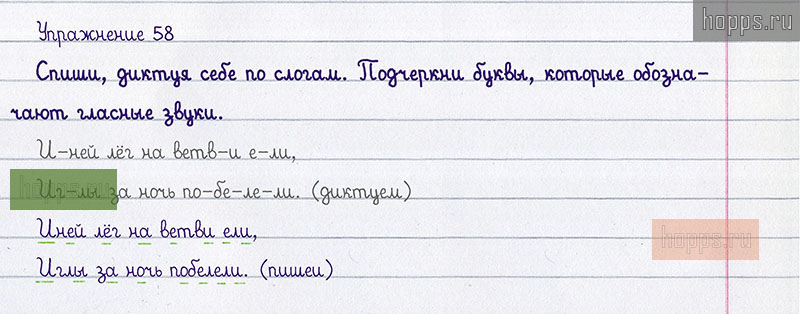 hopps.ru
Упражнение 58
Спиши, диктуя себе по слогам. Подчеркни буквы, которые обозна-
чают гласные звуки.
И-ней лёг на ветв-и е-ли,
Иг-лы за ночь по-бе-ле-ли. (диктуем)
Иней лёг на ветви ели,
hopps.ru
Иглы за ночь побелели. (пишеи)